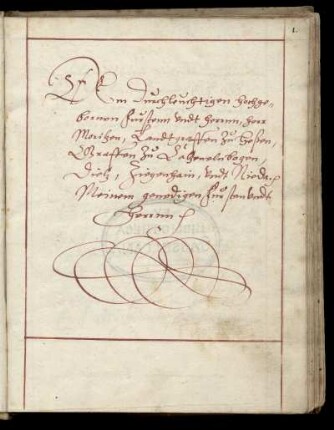 1.
Dem Durchleuchtigen Hochge-
bornen Fürsten undt Herrnn, Herr
Moritzen, Landtgraffen zu Heßen,
Graffen zu Catzenelnbogen,
Dietz, Ziegenhain, undt Nidda,
Meinem genedigen Fürsten undt
Herrnn